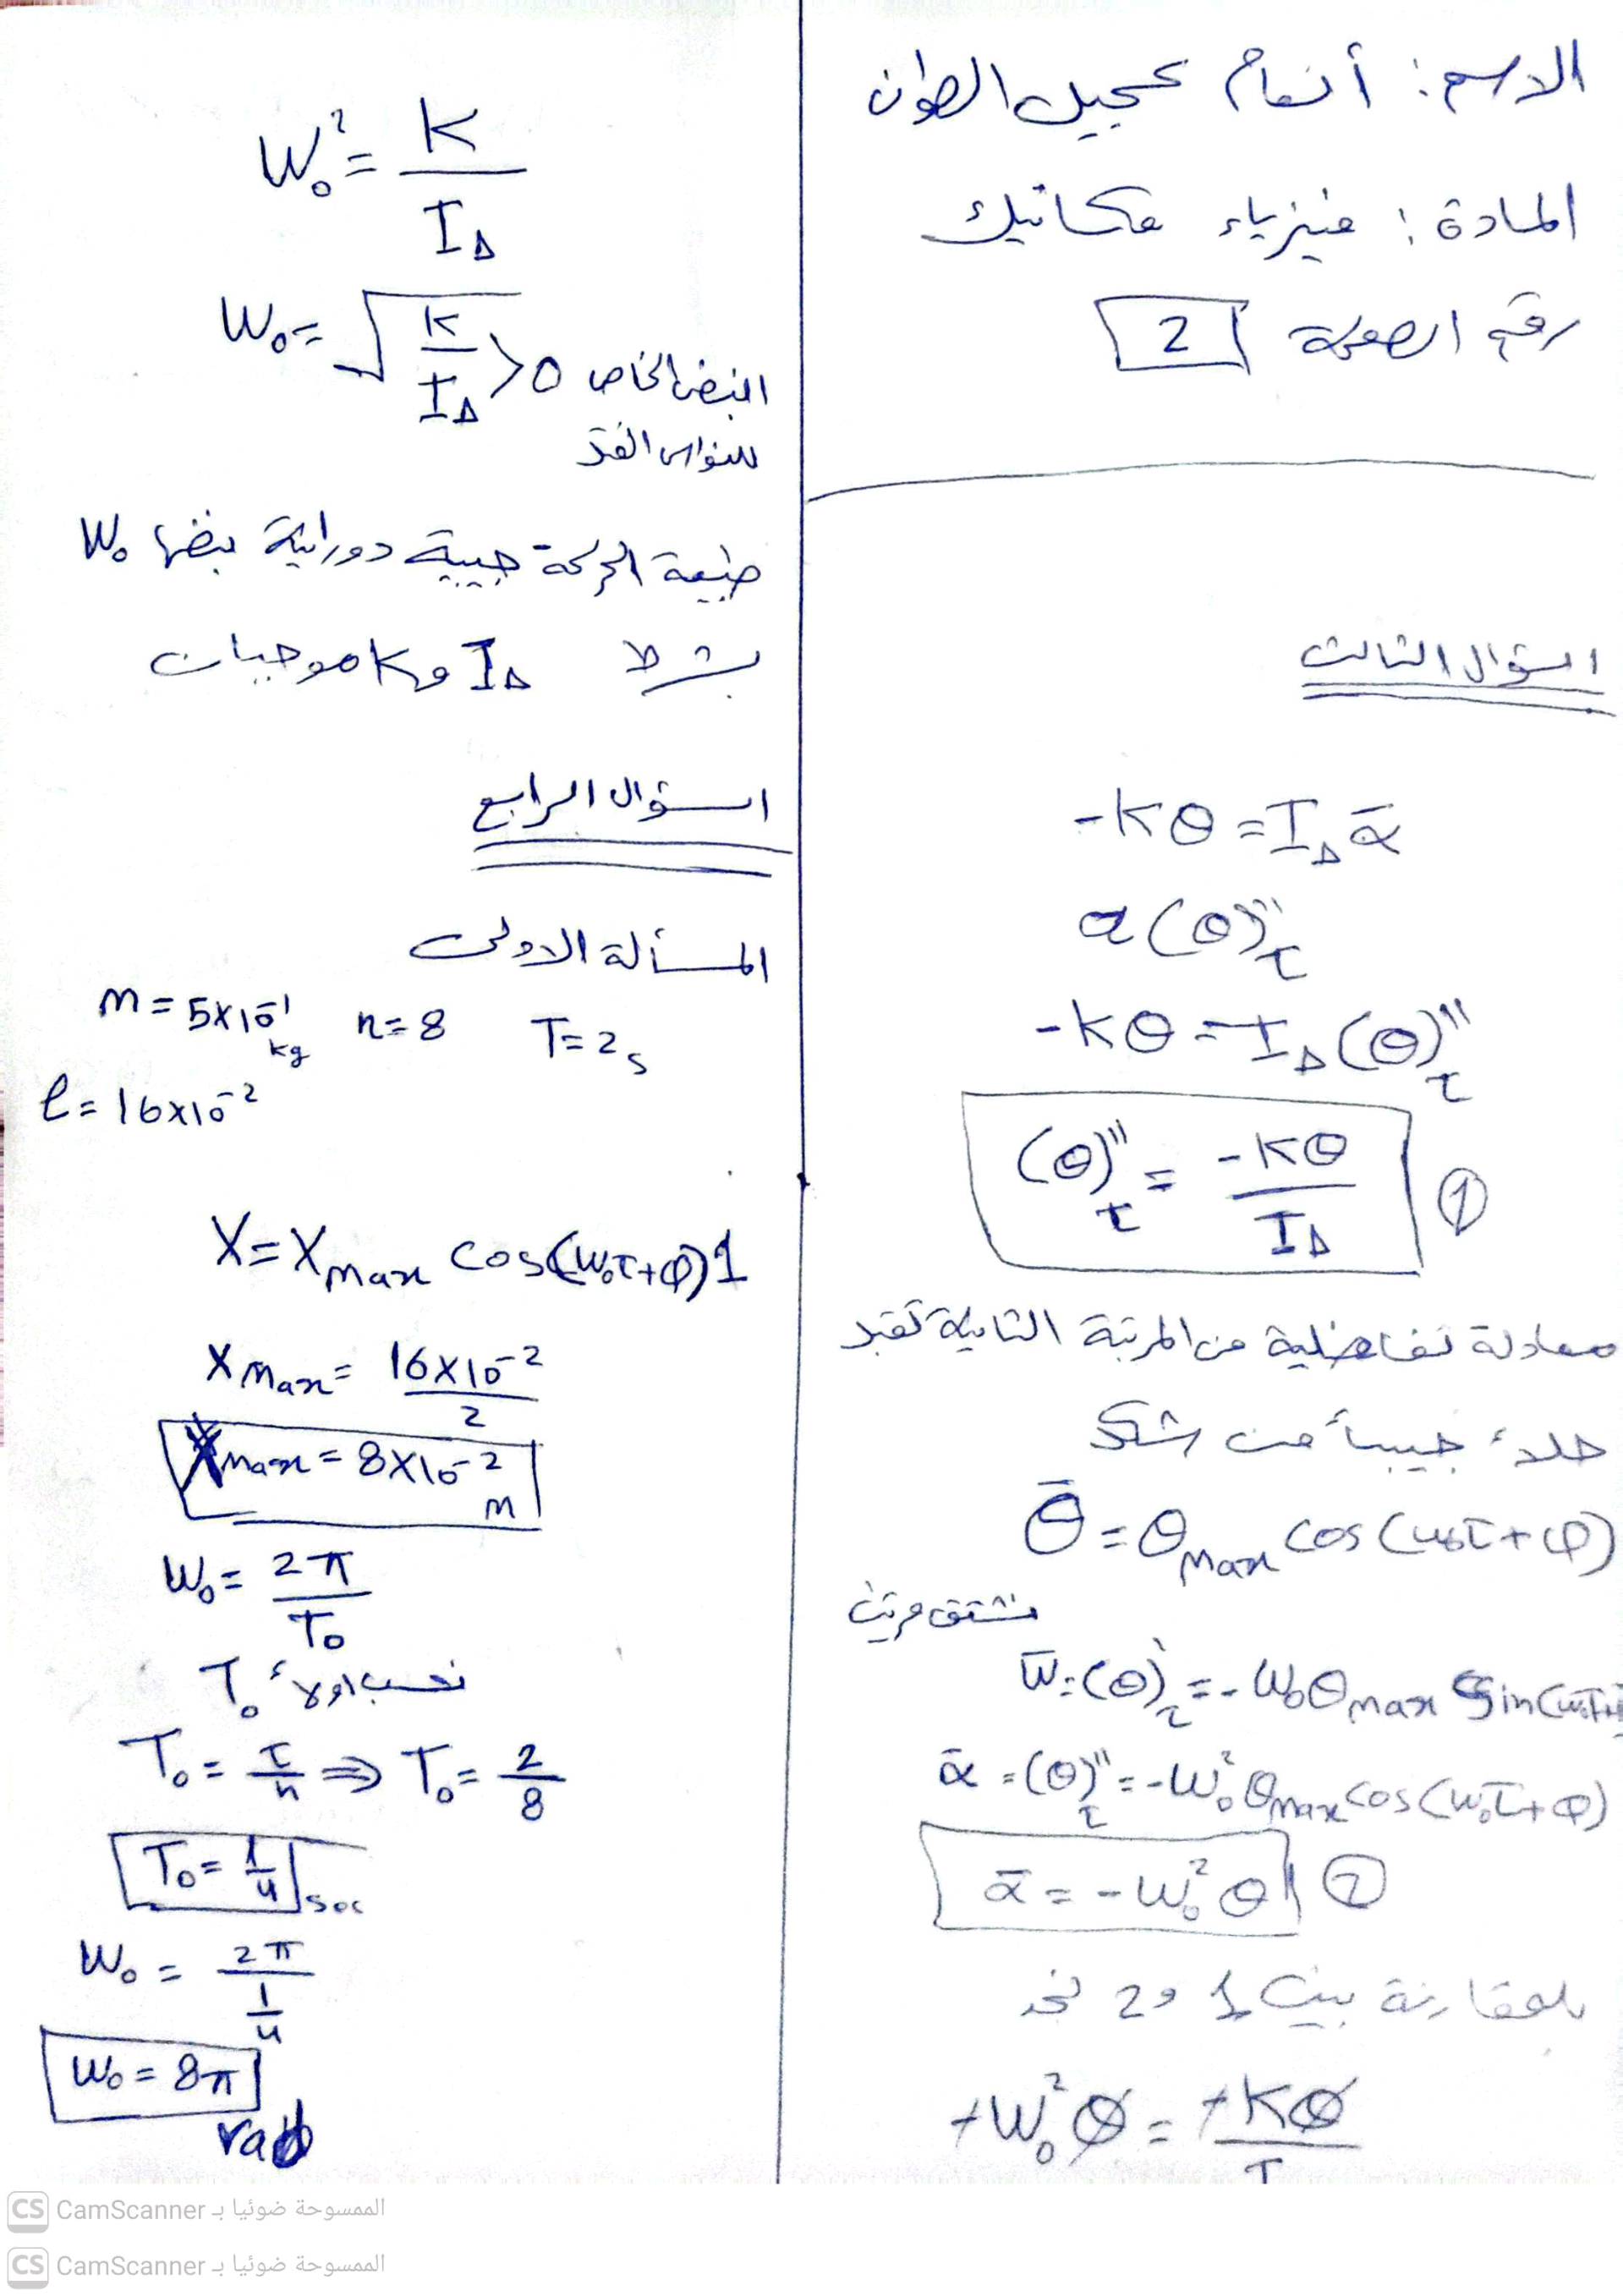 الاسم: أنعام عجيل الطوان
المادة: فيزياء مكانيك
رقم الصفحة 2
السؤال الثالث
-kθ = I_Δ ᾱ
α (θ)''_t
-kθ = I_Δ (θ)''_t
(θ)''_t = -kθ / I_Δ ①
معادلة تفاضلية من المرتبة الثانية تقبل
حلاً جيبياً من شكل
θ̄ = θ_max cos(ω₀t + φ)
نشتق مرتين
ω̄ = (θ)'_t = -ω₀ θ_max sin(ω₀t +
ᾱ = (θ)''_t = -ω₀² θ_max cos(ω₀t + φ)
ᾱ = -ω₀² θ ②
بالمقارنة بين 1 و 2 نجد
+ω₀² θ = +kθ / I
ω₀² = k / I_Δ
ω₀ = √(k / I_Δ) > 0 النبض الخاص
للنواس الفتل
طبيعة الحركة جيبية دورانية نبضها ω₀
بشرط I_Δ و k موجبات
السؤال الرابع
المسألة الاولى
m = 5×10⁻¹ kg n = 8 T = 2s
ℓ = 16×10⁻²
X = X_max cos(ω₀t + φ) 1
X_max = 16×10⁻² / 2
X_max = 8×10⁻² m
ω₀ = 2π / T₀
نحسب اولاً T₀
T₀ = t/n ⇒ T₀ = 2/8
T₀ = 1/4 soc
ω₀ = 2π / 1/4
ω₀ = 8π
rad
CS CamScanner الممسوحة ضوئيا بـ
CS CamScanner الممسوحة ضوئيا بـ